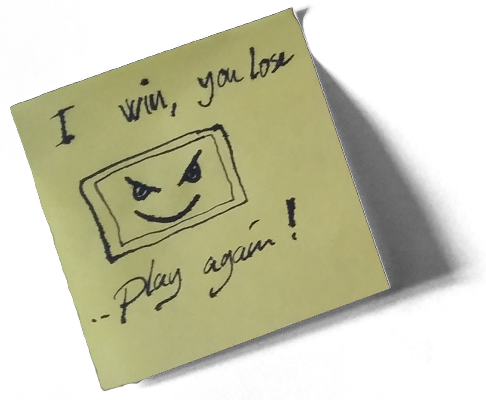 I win, you lose
..play again!